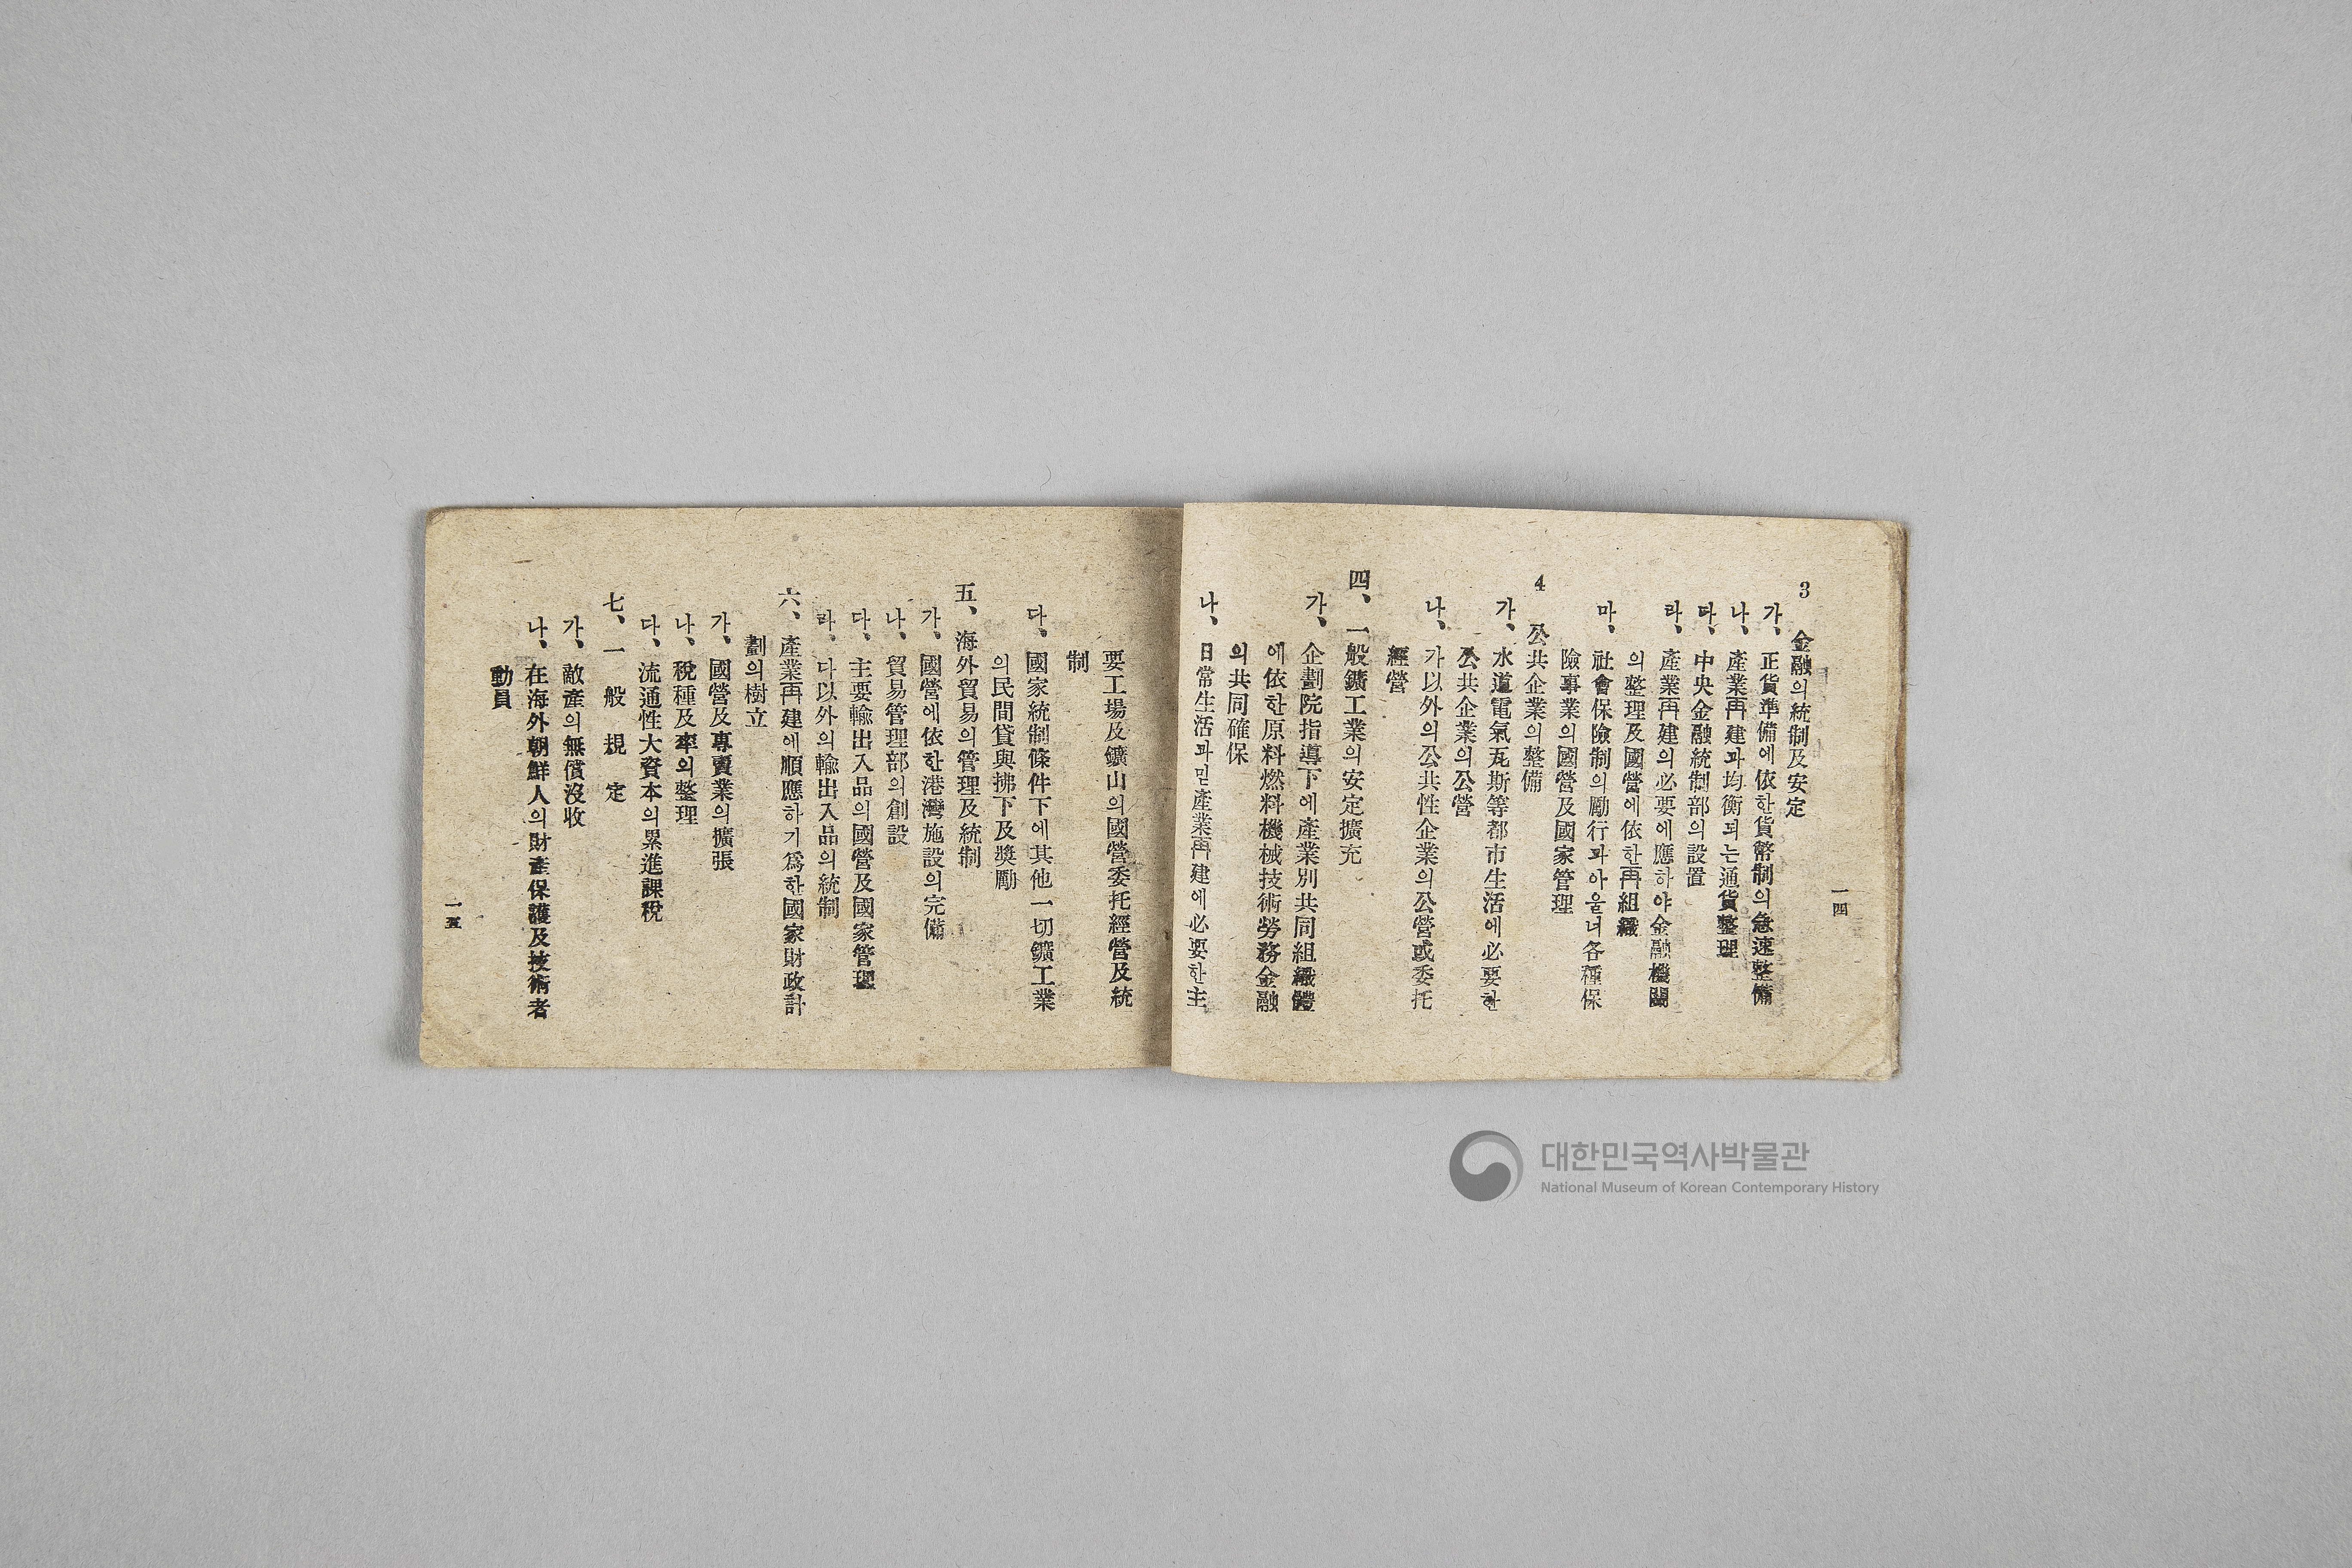 一四
3 金融의統制及安定
가、正貨準備에依한貨幣制의急速整備
나、產業再建과均衡되는通貨整理
다、中央金融統制部의設置
라、產業再建의必要에應하야金融機關
의整理及國營에依한再組織
마、社會保險制의勵行과아울너各種保
險事業의國營及國家管理
4 公共企業의整備
가、水道電氣瓦斯等都市生活에必要한
公共企業의公營
나、가以外의公共性企業의公營或委托
經營
四、一般鑛工業의安定擴充
가、企劃院指導下에產業別共同組織體
에依한原料燃料機械技術勞務金融
의共同確保
나、日常生活과밋產業再建에必要한主
要工場及鑛山의國營委托經營及統
制
다、國家統制條件下에其他一切鑛工業
의民間貸與拂下及奬勵
五、海外貿易의管理及統制
가、國營에依한港灣施設의完備
나、貿易管理部의創設
다、主要輸出入品의國營及國家管理
라、다以外의輸出入品의統制
六、產業再建에順應하기爲한國家財政計
劃의樹立
가、國營及專賣業의擴張
나、稅種及率의整理
다、流通性大資本의累進課稅
七、一般規定
가、敵產의無償沒收
나、在海外朝鮮人의財產保護及技術者
動員
一五
대한민국역사박물관
National Museum of Korean Contemporary History